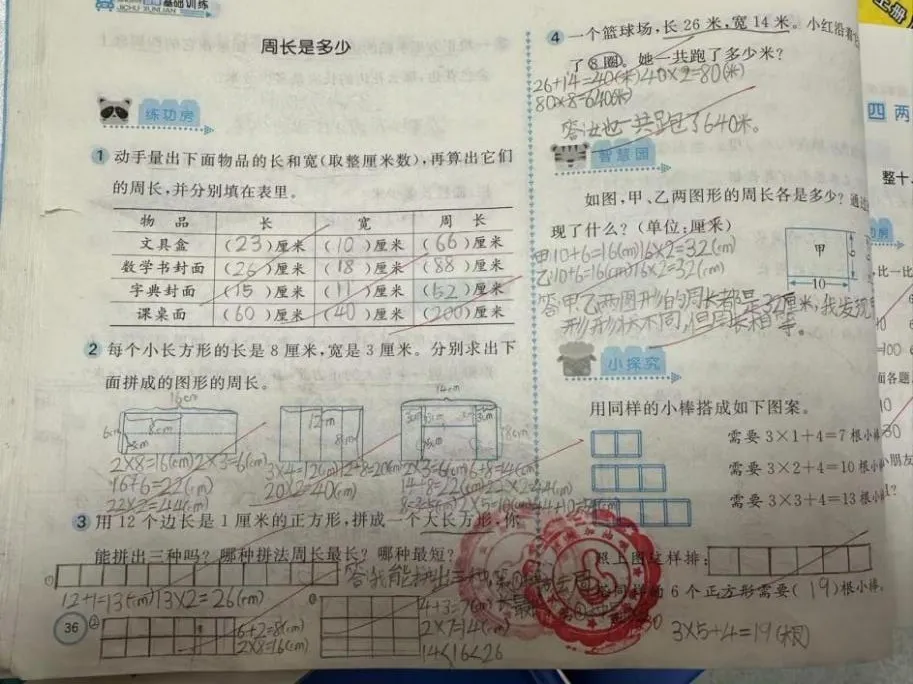 基础训练
JICHU XUNLIAN
周长是多少
练功房
1 动手量出下面物品的长和宽(取整厘米数),再算出它们
的周长,并分别填在表里。
物 品 长 宽 周 长
文具盒 (23)厘米 (10)厘米 (66)厘米
数学书封面 (26)厘米 (18)厘米 (88)厘米
字典封面 (15)厘米 (11)厘米 (52)厘米
课桌面 (60)厘米 (40)厘米 (200)厘米
2 每个小长方形的长是 8 厘米,宽是 3 厘米。分别求出下
面拼成的图形的周长。
16cm
6cm 8cm
12cm
8cm
14cm
8cm
2×8=16(cm) 2×3=6(cm)
16+6=22(cm)
22×2=44(cm)
3×4=12(cm) 12+8=20(cm)
20×2=40(cm)
2×3=6(cm) 6+8=14(cm)
14+8=22(cm) 22×2=44(cm)
3 用 12 个边长是 1 厘米的正方形,拼成一个大长方形,你
能拼出三种吗?哪种拼法周长最长?哪种最短?
①
12+1=13(cm) 13×2=26(cm)
②
6+2=8(cm)
2×8=16(cm)
4+3=7(cm)
2×7=14(cm)
14<16<26
36
4 一个篮球场,长 26 米,宽 14 米。小红沿着
了 8 圈。她一共跑了多少米?
26+14=40(米) 40×2=80(米)
80×8=640(米)
答:她一共跑了640米。
智慧园
如图,甲、乙两图形的周长各是多少?通过
现了什么?(单位:厘米)
甲10+6=16(cm) 16×2=32(cm)
乙10+6=16(cm) 16×2=32(cm)
甲
6
10
答:甲、乙两图形的周长都是32厘米,我发现
形状不同,但周长相等。
小探究
用同样的小棒搭成如下图案。
需要 3×1+4=7 根小棒
需要 3×2+4=10 根小棒
需要 3×3+4=13 根小
照上图这样排:
同样的 6 个正方形需要(19)根小棒。
3×5+4=19(根)
上册
四 两
整十、